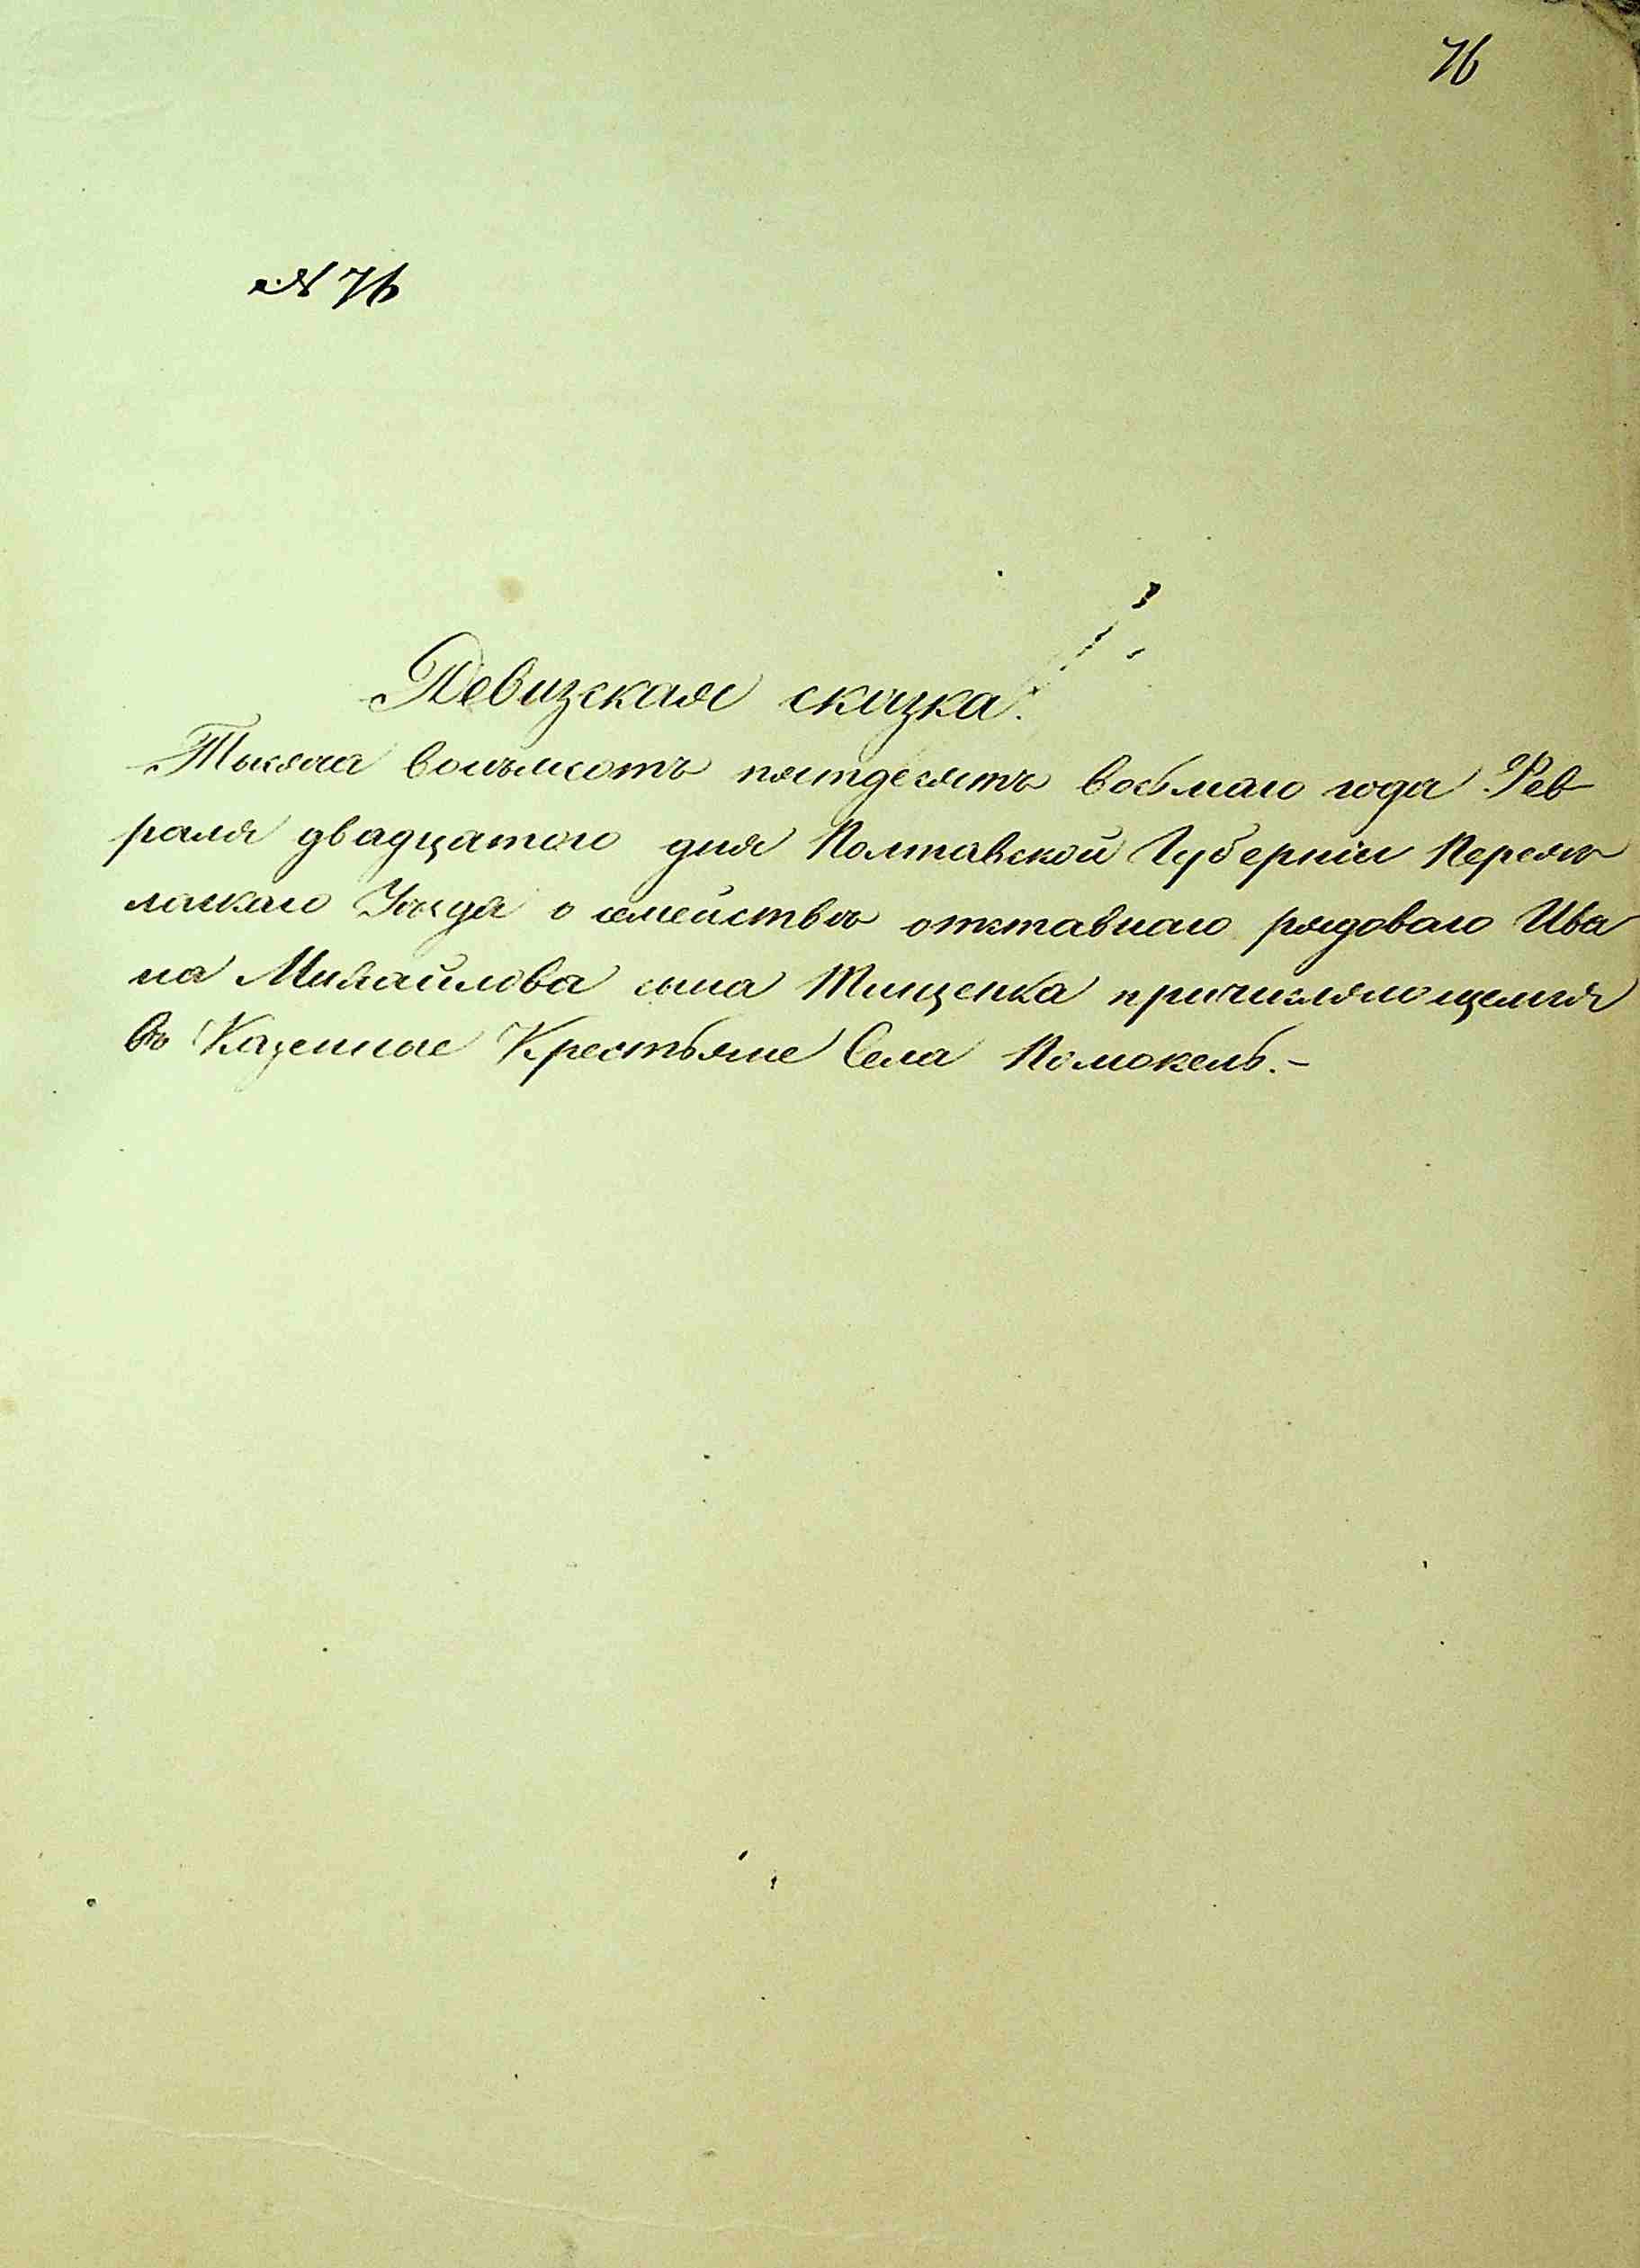 76
№ 76
Ревизская сказка.
Тысяча восемьсотъ пятдесятъ восьмаго года Фев
раля двадцатого дня Полтавской Губерніи Переяс
лавскаго Уѣзда о семействѣ отставнаго рядоваго Ива
на Михайлова сына Тищенка причисляющемся
въ Казенные Крестьяне Села Помокель.-